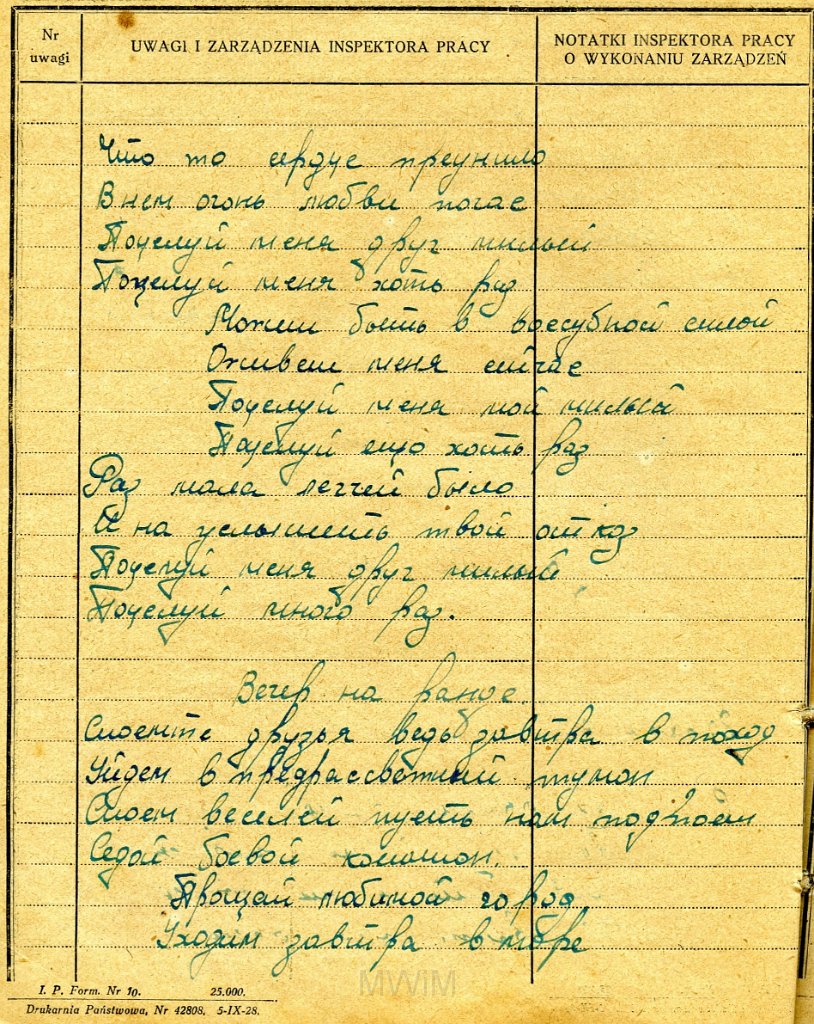 Nr
uwagi
UWAGI I ZARZĄDZENIA INSPEKTORA PRACY
NOTATKI INSPEKTORA PRACY
O WYKONANIU ZARZĄDZEŃ
Что то сердце преунило
В нем огонь любви погас
Поцелуй меня друг милый
Поцелуй меня хоть раз
Может быть в силой
Оживеш меня сейчас
Поцелуй меня мой милый
Поцелуй ещо хоть раз
Раз мала легчей было
И на услышеть твой атказ
Поцелуй меня друг милый
Поцелуй много раз.
Вечер на ранде.
Споемте друзья ведь завтра в поход
Уйдем в предрассветний туман
Споем веселей пусть нам подпоем
Седой боевой
Прощай любимой город
Уходим завтра в море
I. P. Form. Nr 10. 25.000.
Drukarnia Państwowa, Nr 42808. 5-IX-28.
MWiM